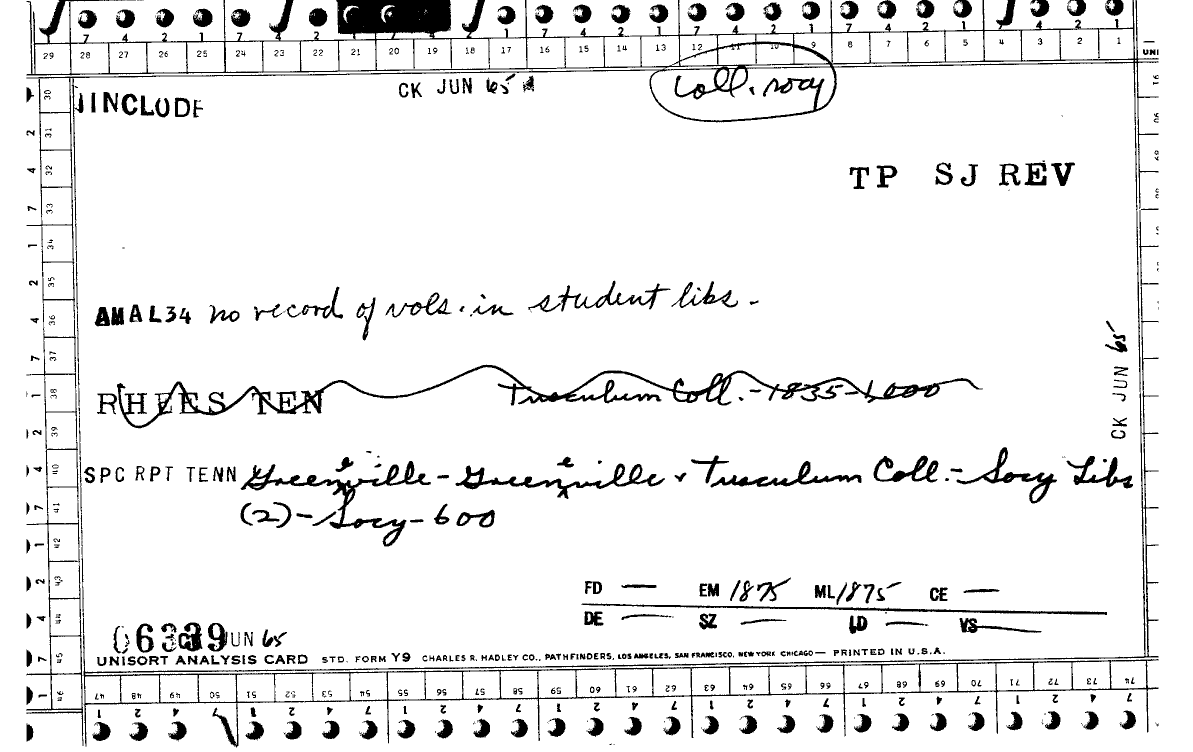 7 4 2 1 7 4 2 7 4 2 1 7 4 2 1 7 4 2 1 7 4 2 1 4 2 1
29 28 27 26 25 24 23 22 21 20 19 18 17 16 15 14 13 12 11 10 9 8 7 6 5 4 3 2 1
INCLUDE
CK JUN 65
Coll. socy
TP SJ REV
AMAL34 no record of vols. in student libs.
RHEES TEN Tusculum Coll. - 1835 - 1,000
CK JUN 65
SPC RPT TENN Greeneville - Greeneville & Tusculum Coll. - Socy Libs
(2) - Socy - 600
FD — EM 1875 ML 1875 CE —
DE — SZ — LD — VS —
06339 JUN 65
UNISORT ANALYSIS CARD STD. FORM Y9 CHARLES R. HADLEY CO., PATHFINDERS, LOS ANGELES, SAN FRANCISCO, NEW YORK CHICAGO — PRINTED IN U.S.A.
30 31 32 33 34 35 36 37 38 39 40 41 42 43 44 45 46
47 48 49 50 51 52 53 54 55 56 57 58 59 60 61 62 63 64 65 66 67 68 69 70 71 72 73 74